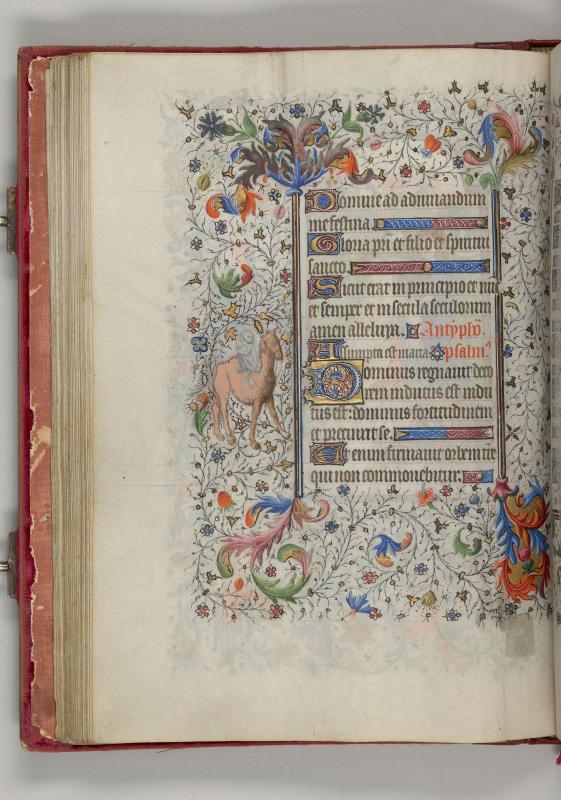 Domine ad adiuuandum
me festina.
Gloria pri et filio et spiritui
sancto.
Sicut erat in principio et nu
et semper et in secula seculorum
amen alleluya. Antypho.
Assumpta est maria psalm.
Dominus regnauit deco
rem indutus est indu
tus est dominus fortitudinem
et precinxit se.
Et enim firmauit orbem tre
qui non commouebitur.